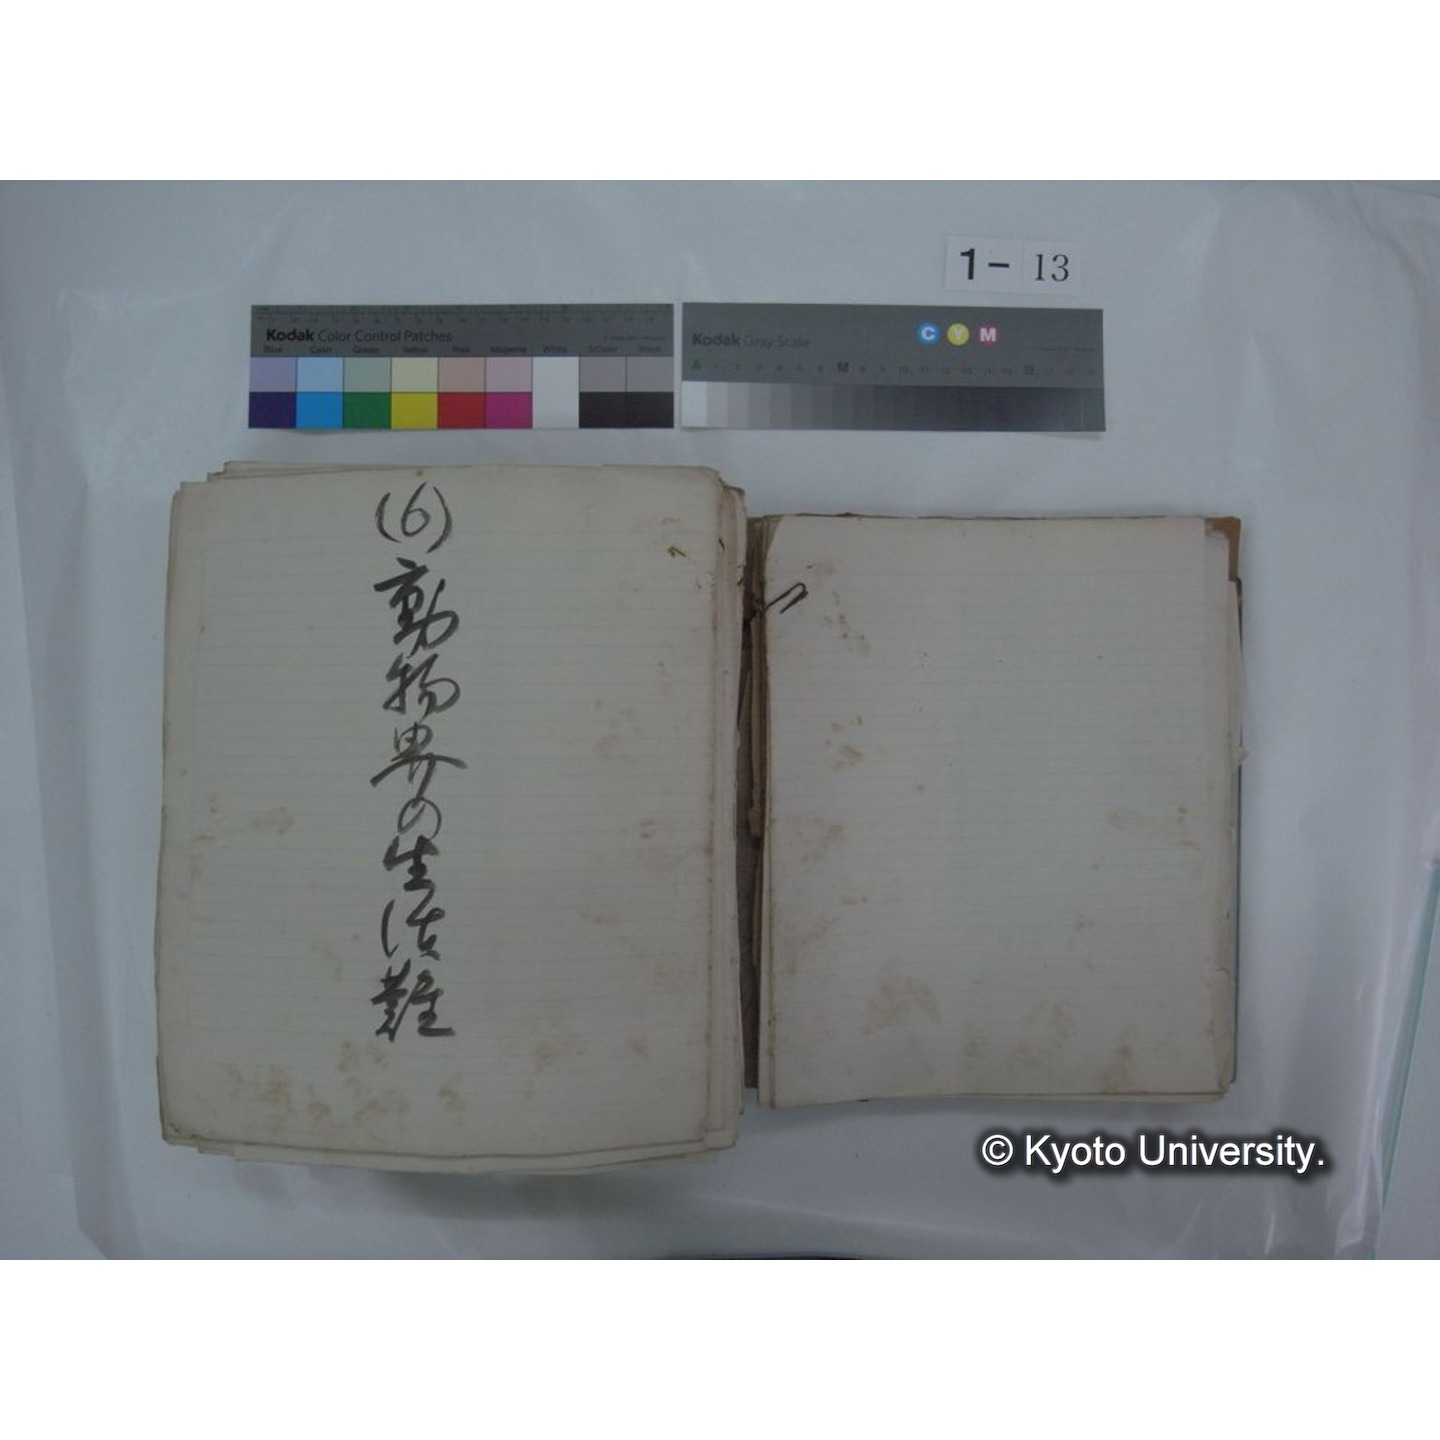 1- 13
Kodak Color Control Patches
Blue Cyan Green Yellow Red Magenta White 3/Color Black
Kodak Gray Scale
C Y M
A 1 2 3 4 5 6 M 8 9 10 11 12 13 14 15 B 17 18 19
(6)動物界の生活難
© Kyoto University.